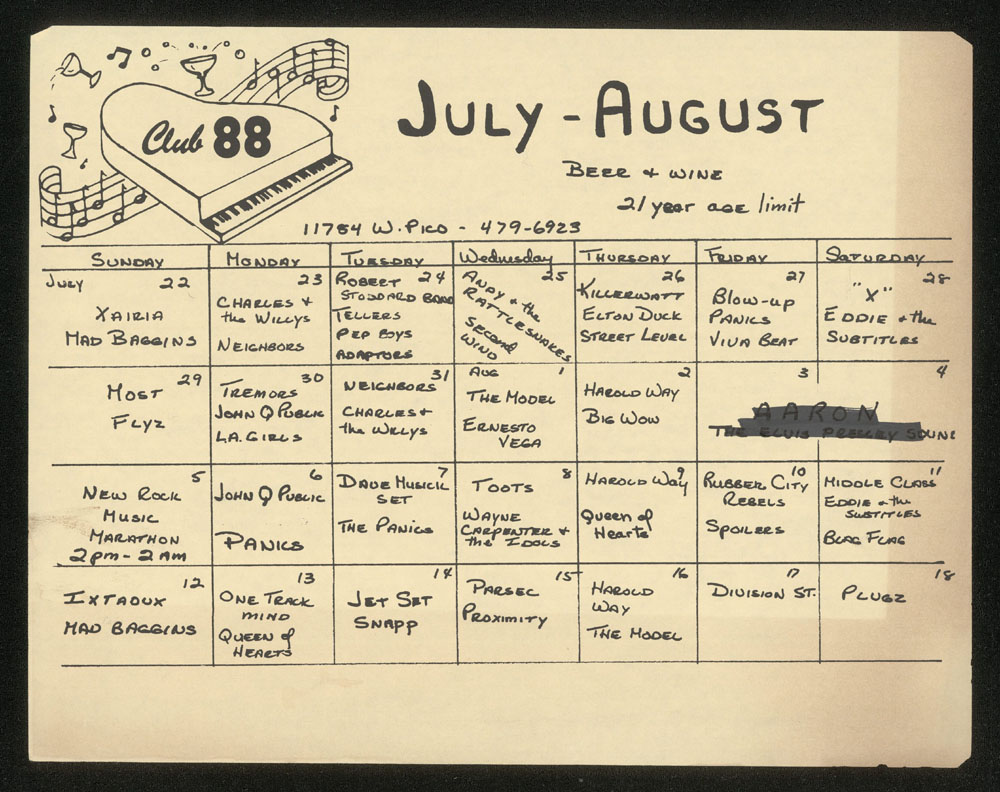 Club 88
JULY - AUGUST
BEER + WINE
21 year age limit
11784 W. PICO - 479-6923
SUNDAY MONDAY TUESDAY Wednesday THURSDAY FRIDAY SATURDAY
JULY 22
XAIRIA
MAD BAGGINS
23
CHARLES +
the WILLYS
NEIGHBORS
24
ROBERT
STODDARD BAND
TELLERS
PEP BOYS
ADAPTORS
25
ANDY + the
RATTLESNAKES
SECOND
WIND
26
KILLERWATT
ELTON DUCK
STREET LEVEL
27
BLOW-UP
PANICS
VIVA BEAT
28
"X"
EDDIE + the
SUBTITLES
29
MOST
FLYZ
30
TREMORS
JOHN Q PUBLIC
L.A. GIRLS
31
NEIGHBORS
CHARLES +
the WILLYS
AUG 1
THE MODEL
ERNESTO
VEGA
2
HAROLD WAY
BIG WOW
3
4
AARON
THE ELVIS PRESLEY SOUND
5
NEW ROCK
MUSIC
MARATHON
2pm - 2am
6
JOHN Q PUBLIC
PANICS
7
DAVE MUSICK
SET
THE PANICS
8
TOOTS
WAYNE
CARPENTER +
the IDOLS
9
HAROLD WAY
Queen of
Hearts
10
RUBBER CITY
REBELS
SPOILERS
11
MIDDLE CLASS
EDDIE + the
SUBTITLES
BLAG FLAG
12
IXTAOUX
MAD BAGGINS
13
ONE TRACK
MIND
QUEEN of
HEARTS
14
JET SET
SNAPP
15
PARSEC
PROXIMITY
16
HAROLD
WAY
THE MODEL
17
DIVISION ST.
18
PLUGZ